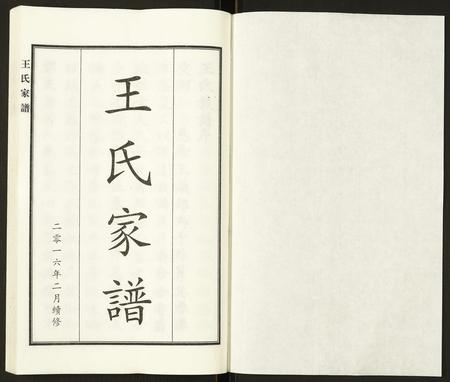 王氏家譜
王氏家譜
二零一六年二月續修